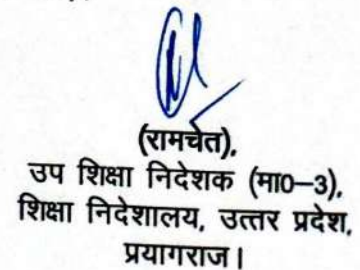 (रामचेत),
उप शिक्षा निदेशक (मा0-3),
शिक्षा निदेशालय, उत्तर प्रदेश,
प्रयागराज।